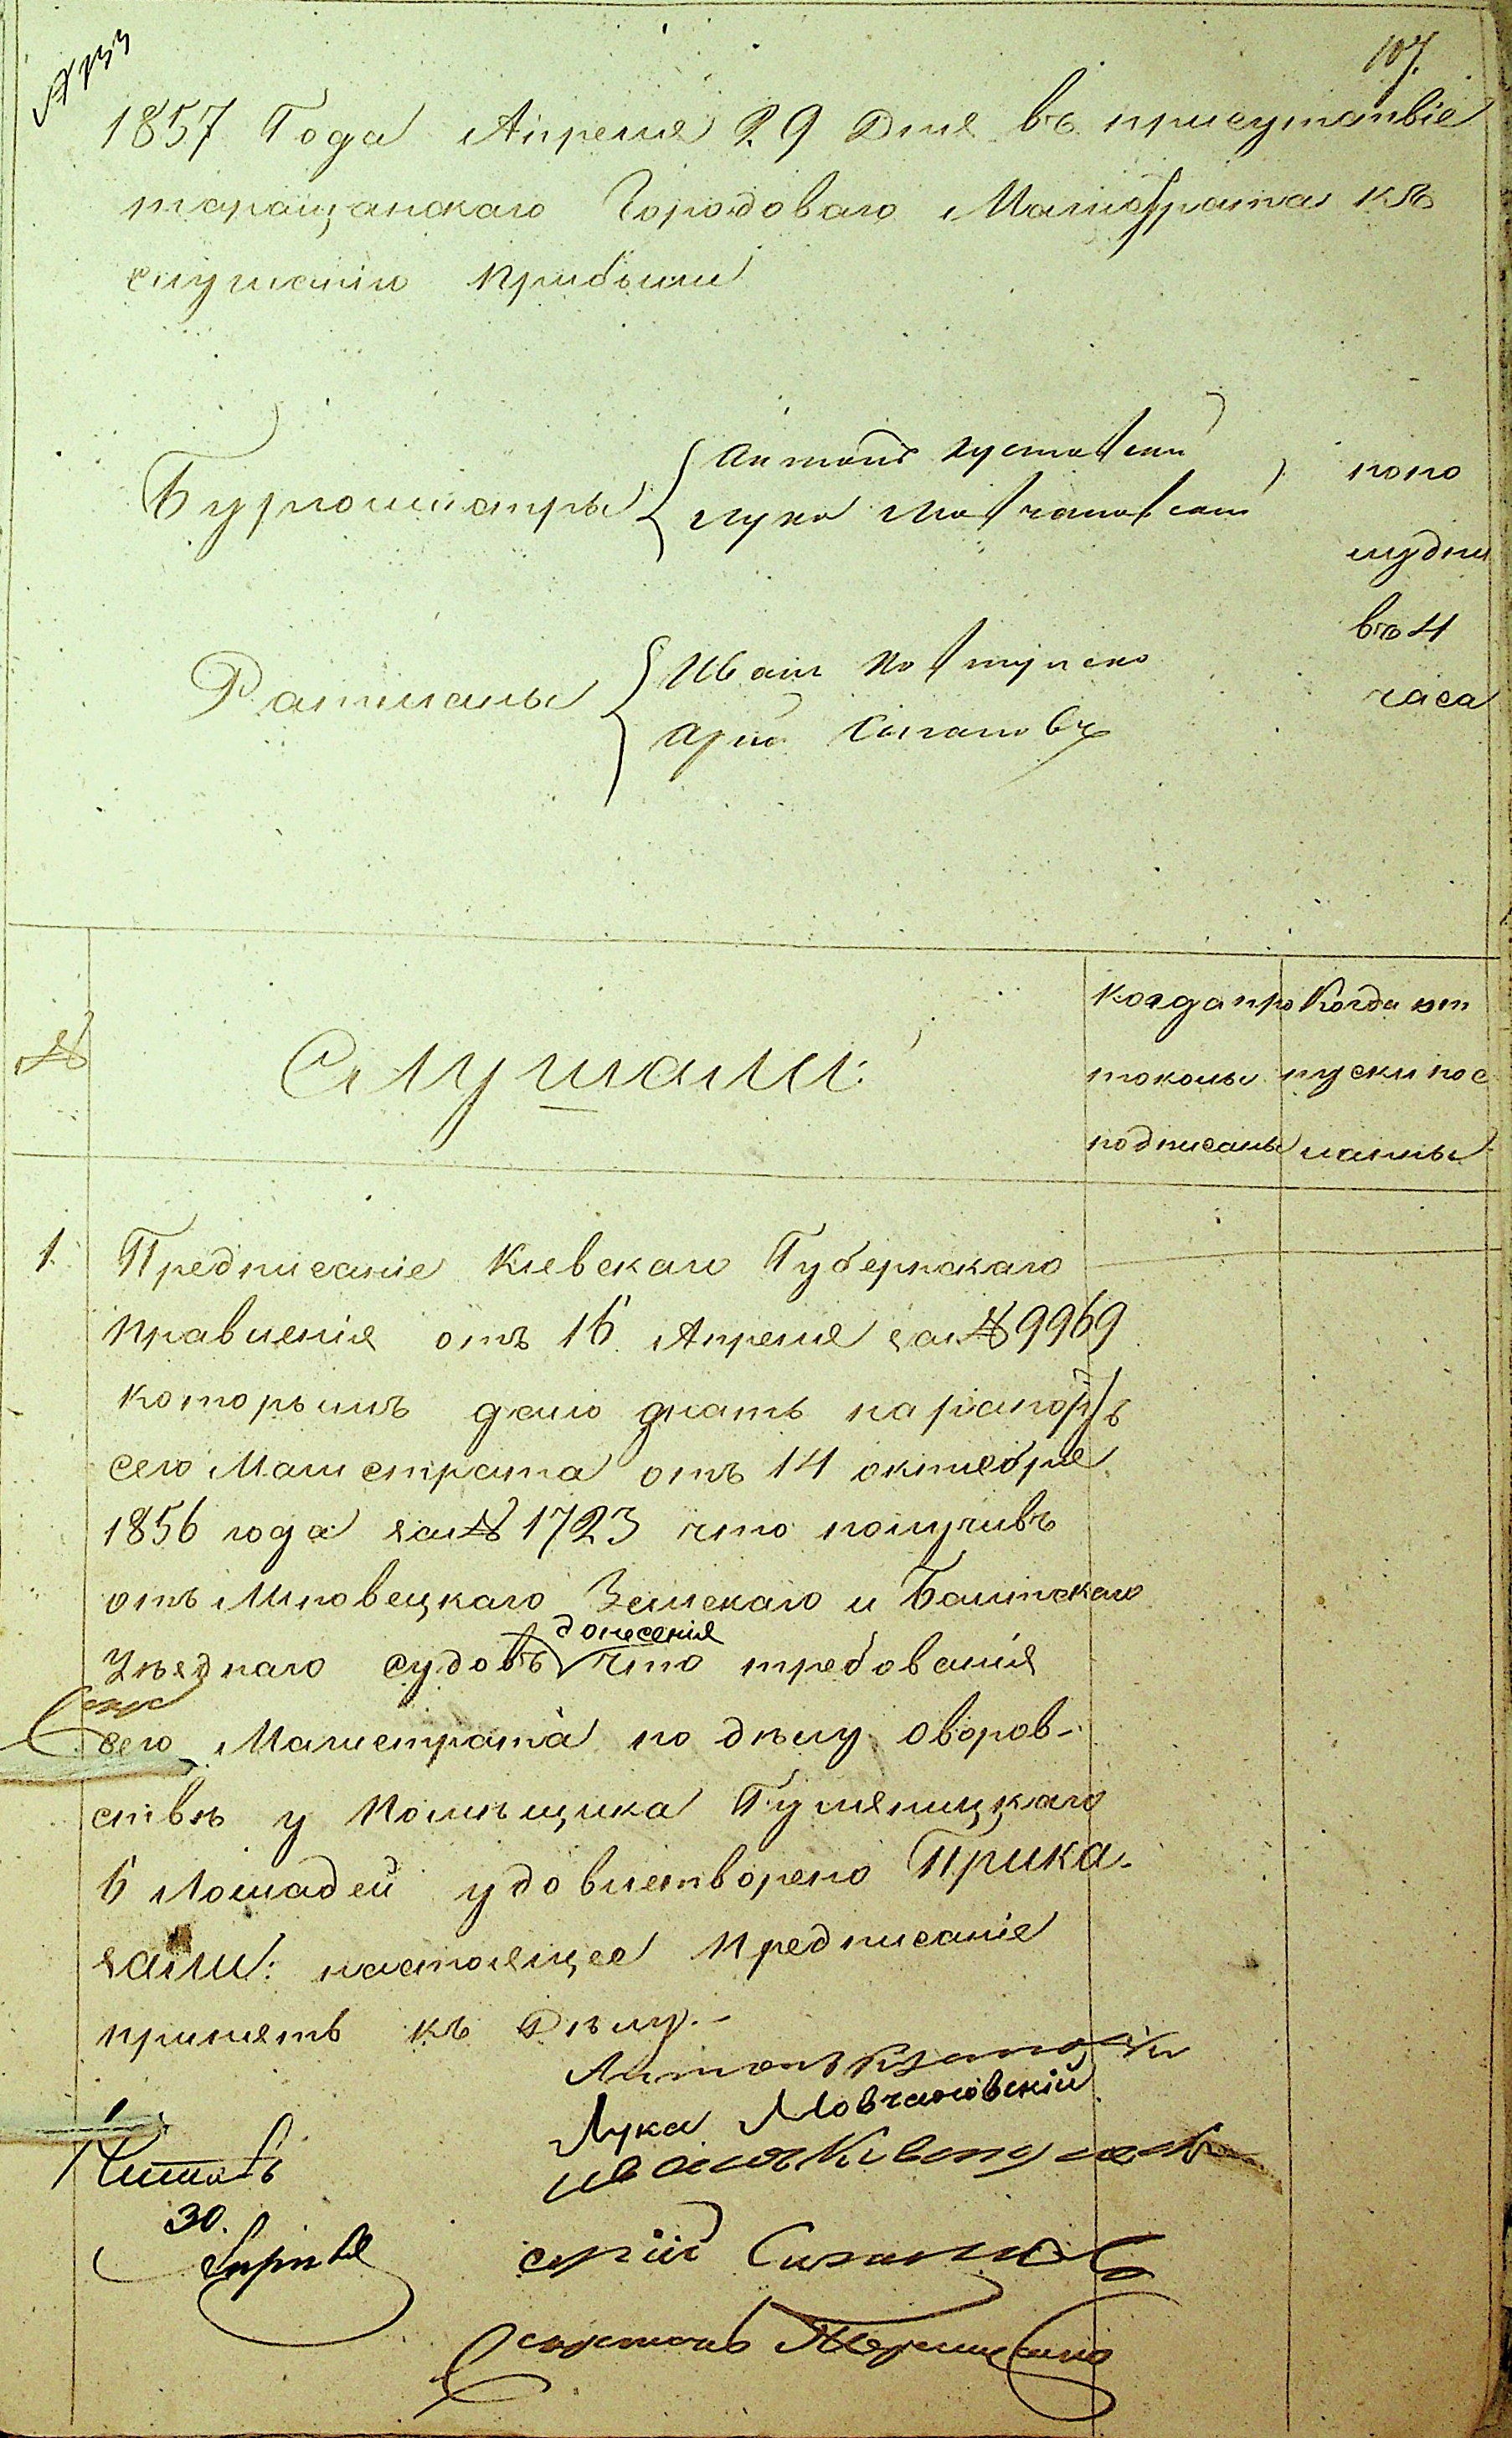 107.
1857 Года Апреля 29 Дня въ присутствіе
таращанскаго Городоваго Магистрата къ
слушанію прибыли
Бургомистры
Антонъ
Лука Мовчановскій
попо
лудни
въ 4
часа
Ратманы
Иванъ
№
Слушали:
когда про
токолы
подписаны
Когда от
пуски пос
ланны
1. Предписаніе Кіевскаго Губернскаго
правленія отъ 16 Апреля за № 9969
которымъ дано знать на рапортъ
сего Магистрата отъ 14 октября
1856 года за № 1723 что получивъ
отъ Липовецкаго Земскаго и Балтскаго
Уезднаго судовъ донесенія что требованія
сего Магистрата по дѣлу оворов-
ствѣ у Помѣщика
6 Лошадей удовлетворено Прика-
зали: настоящее предписаніе
принять къ Дѣлу.-
Антонъ
Лука Мовчановскій
Читалъ
30.
Апреля